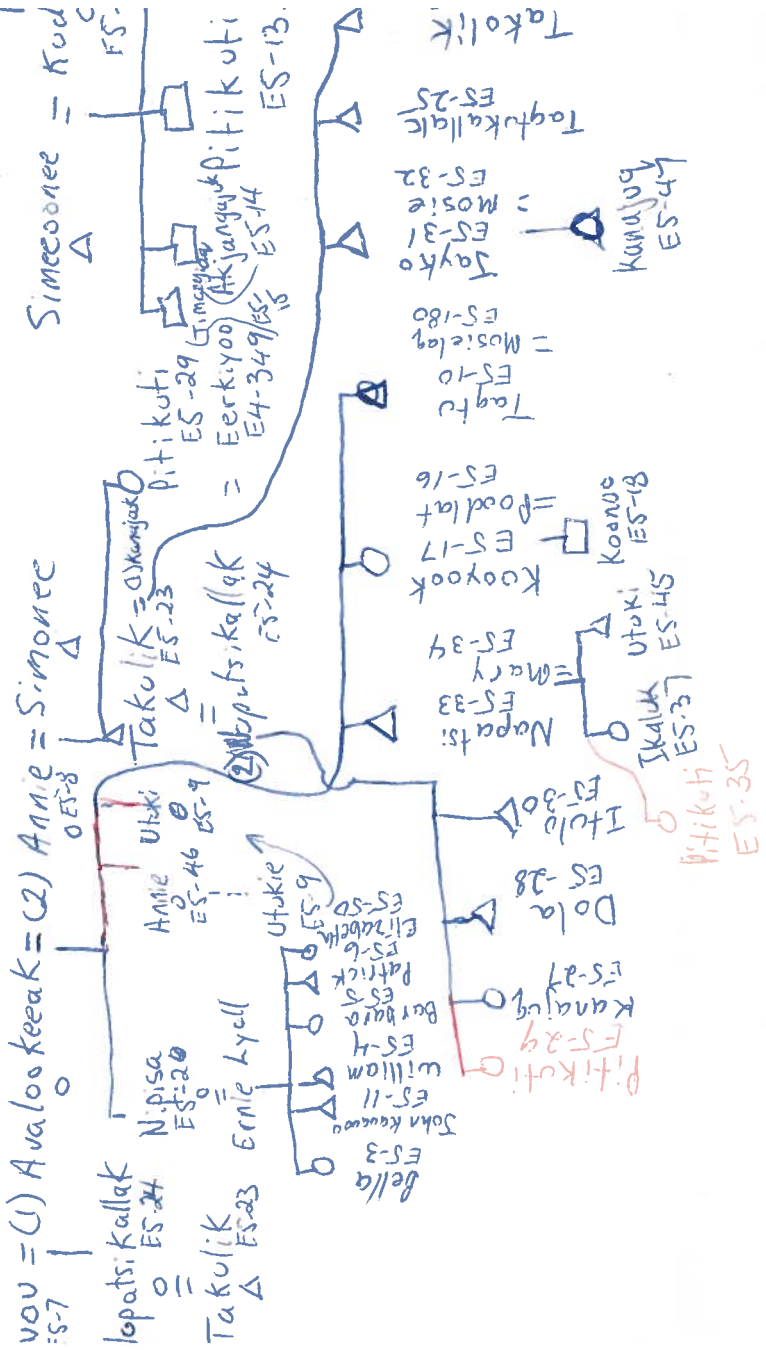 vov = (1) Avalookeeak = (2) Annie = Simonee
ES-7
ES-8
Simeeoonee = Kud
ES-
lopatsikallak
ES-24
=
Takulik
ES-23
Nipisa
ES-20
=
Ernie Lyall
Annie
ES-46
Utuki
ES-9
Utukie
ES-9
Takulik = (1) Kanajuk
ES-23
=
(2) Napatsikallak
ES-24
Pitikuti
ES-29
= Eerkiyoo
E4-349
Akjangajuk
ES-14
ES-15
Pitikuti
ES-13
Bella
ES-3
John Kavavou
ES-11
William
ES-4
Barbara
ES-5
Patrick
ES-6
Elizabeth
ES-50
Pitikuti
ES-29
Kanajuq
ES-27
Dola
ES-28
Itulu
ES-30
Napatsi
ES-33
= Mary
ES-34
Pitikuti
ES-35
Ikaluk
ES-37
Utuki
ES-45
Kooyook
ES-17
= Poodlat
ES-16
Koonoo
ES-18
Taqtu
ES-10
= Mosielaq
ES-180
Jayko
ES-31
= Mosie
ES-32
Kanajuq
ES-47
Taqtukallak
ES-25
Takolik